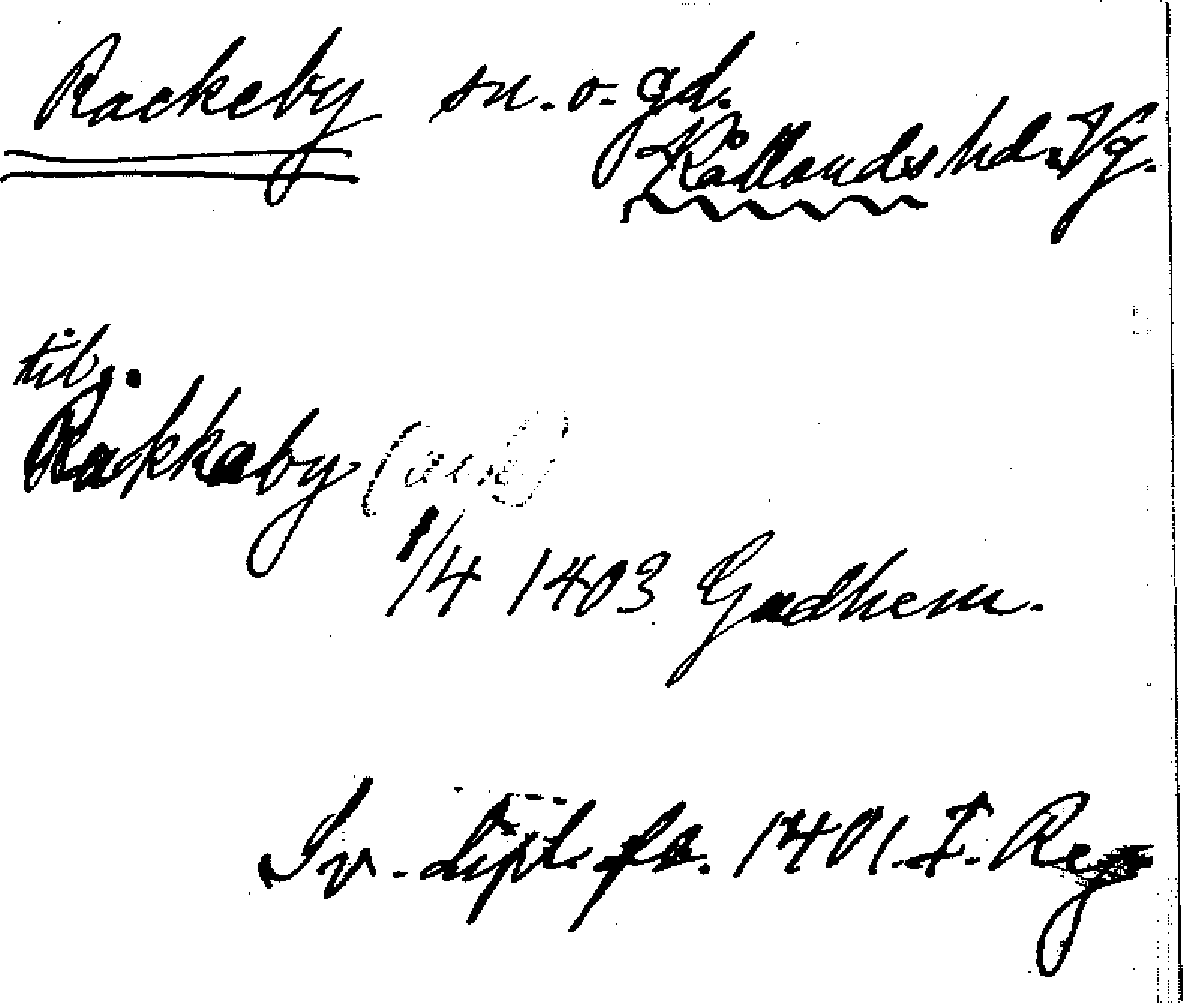 Rackeby sn. o. gd.
Kållands hd. Vg.
til
Rakkaby
1/4 1403 Gudhem.
Sv. dipl. fr. 1401. I. Reg